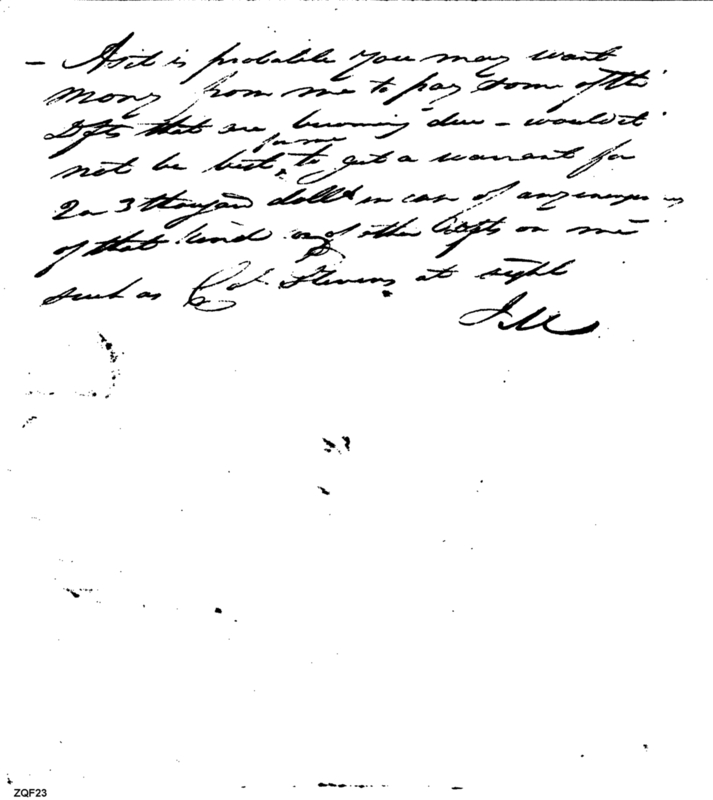 - As it is probable you may want
mony from me to pay some of the
Dfts that are becoming due - would it
for me
not be best, to get a warrant for
2 or 3 thousand dolls in case of any
of that kind or of other Dfts on me
such as Col. Stevens at sight
JM
ZQF23